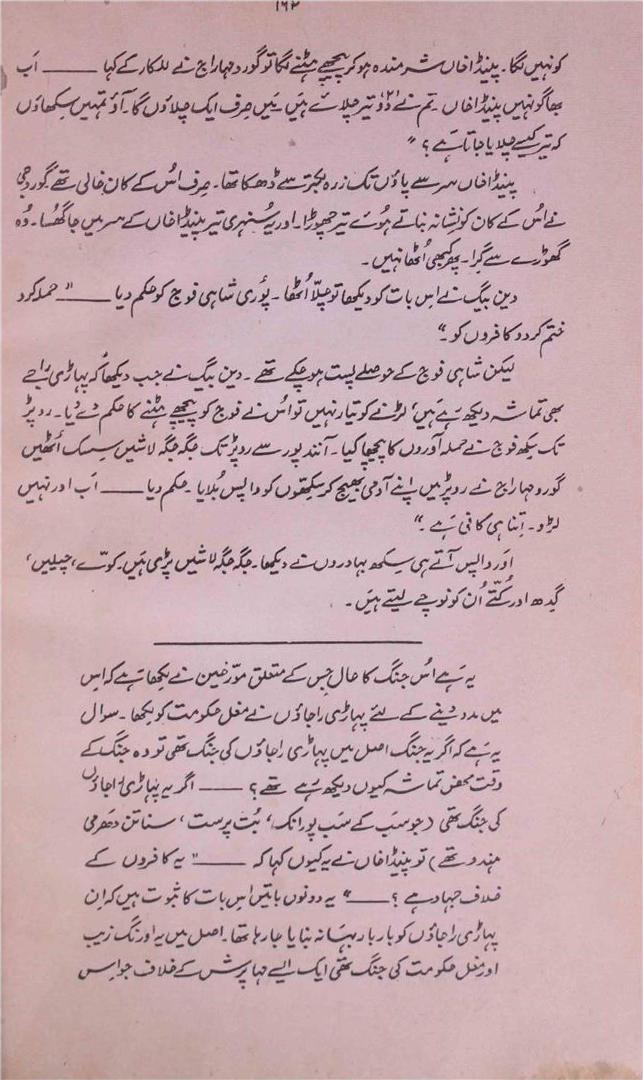 ۱۶۲
کو نہیں لگا۔ پینڈا خاں شرمندہ ہو کر پیچھے ہٹنے لگا تو گورو مہاراج نے للکار کے کہا —— اَب
بھاگو نہیں پینڈا خاں۔ تم نے دو تیر چلائے ہیں۔ مَیں صرف ایک چلاؤں گا۔ آؤ تمہیں سکھاؤں
کہ تیر کیسے چلایا جاتا ہَے؟"
پینڈا خاں سر سے پاؤں تک زرہ بکتر سے ڈھکا تھا۔ صرف اُس کے کان خالی تھے گورو جی
نے اُس کے کان کو نشانہ بناتے ہوئے تیر چھوڑا۔ اور یہ سُنہری تیر پینڈا خاں کے سر میں جا گھُسا۔ وُہ
گھوڑے سے گرا۔ پھر کبھی اُٹھا نہیں۔
دین بیگ نے اِس بات کو دیکھا تو چِلّا اُٹھا۔ پوُری شاہی فوج کو حکم دیا —— "حملہ کرو
ختم کر دو کافروں کو۔"
لیکن شاہی فوج کے حوصلے پست ہو چکے تھے۔ دین بیگ نے جب دیکھا کہ پہاڑی راجے
بھی تماشہ دیکھ رہَے ہَیں، لڑنے کو تیار نہیں تو اُس نے فوج کو پیچھے ہٹنے کا حکم دے دیا۔ روپڑ
تک سِکھ فوج نے حملہ آوروں کا پیچھا کیا۔ آنند پور سے روپڑ تک جگہ جگہ لاشیں سسک اُٹھیں
گورو مہاراج نے روپڑ میں اپنے آدمی بھیج کر سِکھوں کو واپس بُلایا۔ حکم دیا —— اَب اور نہیں
لڑو۔ اِتنا ہی کافی ہَے۔"
اَور واپس آتے ہی سِکھ بہادروں نے دیکھا۔ جگہ جگہ لاشیں پڑی ہَیں۔ کوّے، چیلیں،
گِدھ اور کُتّے اُن کو نوچے لیتے ہَیں۔
یہ ہَے اُس جنگ کا حال جِس کے متعلق مورّخین نے لِکھا ہَے کہ اِس
میں مدد دینے کے لئے پہاڑی راجاؤں نے مغل حکومت کو لِکھا۔ سوال
یہ ہَے کہ اگر یہ جنگ اصل میں پہاڑی راجاؤں کی جنگ تھی تو وہ جنگ کے
وقت محض تماشہ کیوں دیکھ رہَے تھے؟ —— اگر یہ پہاڑی راجاؤں
کی جنگ تھی (جو سَب کے سَب پورانک، بُت پرست، سناتن دھرمی
ہندو تھے) تو پینڈا خاں نے یہ کیوں کہا کہ —— "یہ کافروں کے
خلاف جہاد ہے؟ ——" یہ دونوں باتیں اِس بات کا ثبوت ہیں کہ اِن
پہاڑی راجاؤں کو بار بار بہانہ بنایا جا رہا تھا۔ اصل میں یہ اورنگ زیب
اور مغل حکومت کی جنگ تھی ایک ایسے مہا پرش کے خلاف جو اِس